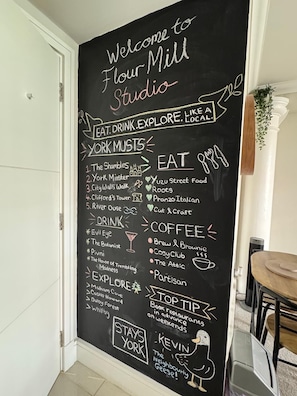 Welcome to
Flour Mill
Studio
EAT. DRINK. EXPLORE. LIKE A LOCAL.
YORK MUSTS
1. The Shambles
2. York Minster
3. City Walls Walk
4. Clifford's Tower
5. River Ouse
DRINK
Evil Eye
The Botanist
Pivni
The House of Trembling
Madness
EXPLORE
Malham Cove
Castle Howard
Dalby Forest
Whitby
STAYS
YORK
EAT
Yuzu Street Food
Roots
Pranzo Italian
Cut & Craft
COFFEE
Brew & Brownie
CosyClub
The Attic
Partisan
TOP TIP
Book restaurants
in advance
on weekends
KEVIN
The
Neighbourly
Geese!